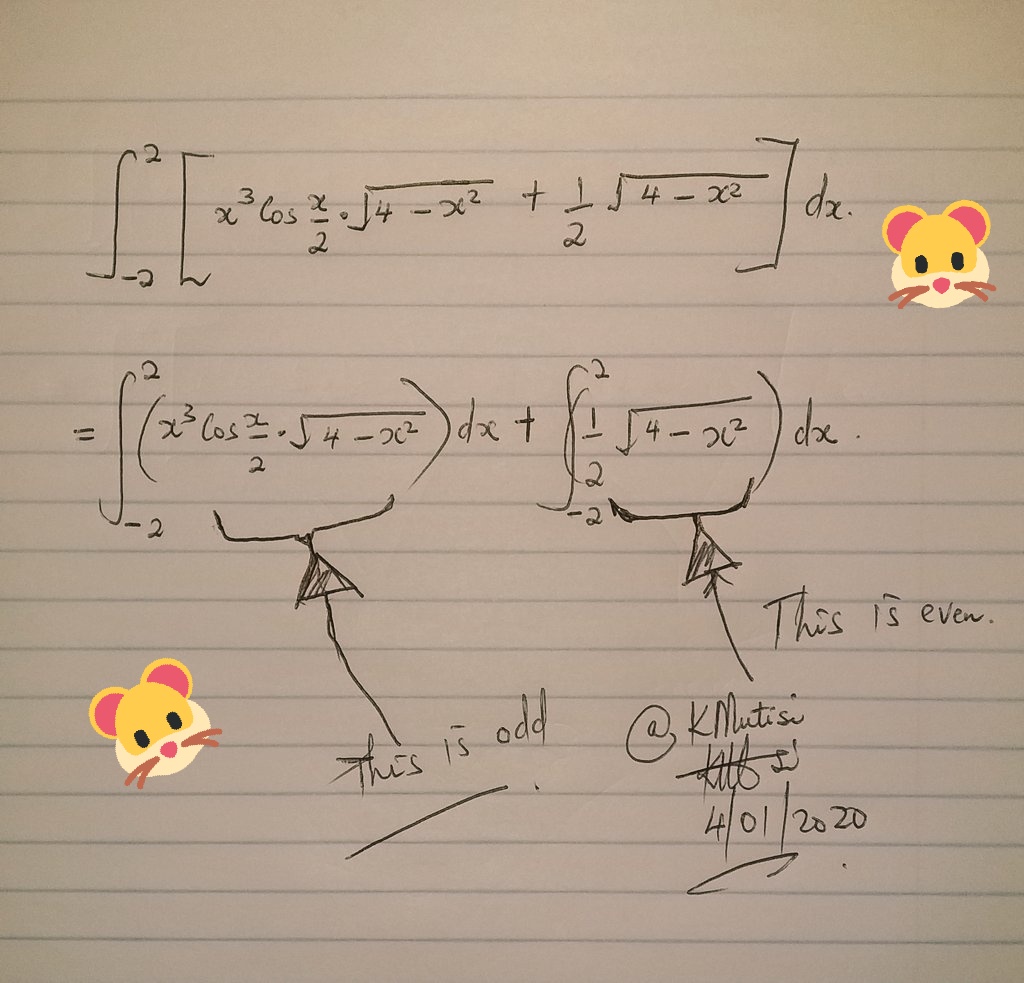 ∫₋₂² [ x³ Cos x/2 · √(4 − x²) + 1/2 √(4 − x²) ] dx.
= ∫₋₂² ( x³ Cos x/2 · √(4 − x²) ) dx + ∫₋₂² ( 1/2 √(4 − x²) ) dx.
This is even.
This is odd.
@KMutisi
4/01/2020